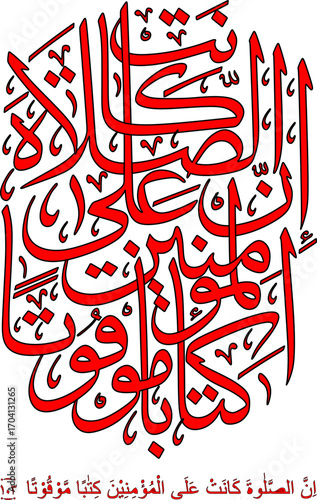 إنّ الصّلاة كانت على المؤمنين كتابا موقوتا
اِنَّ الصَّلٰوةَ كَانَتْ عَلَى الْمُؤْمِنِيْنَ كِتٰبًا مَّوْقُوْتًا
Adobe Stock | #1704131265